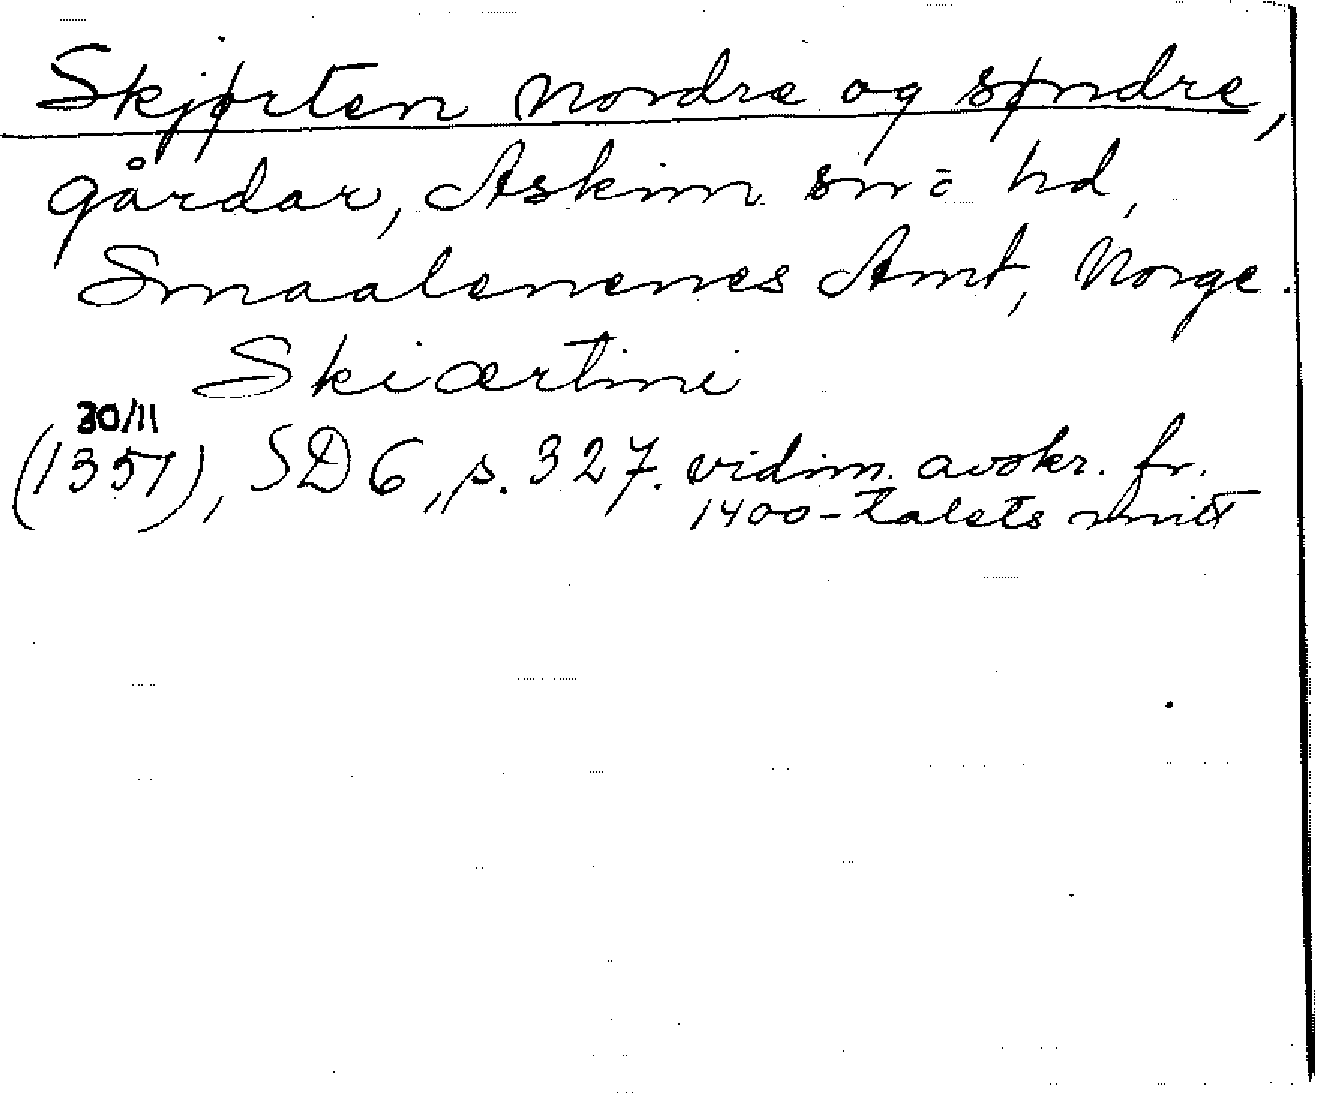 Skjørten nordre og søndre,
gårdar, Askim sn = hd,
Smaalenenes Amt, Norge.
Skiærtini
30/11
(1357), SD6, p. 327. vidim. avskr. fr.
1400-talets mitt